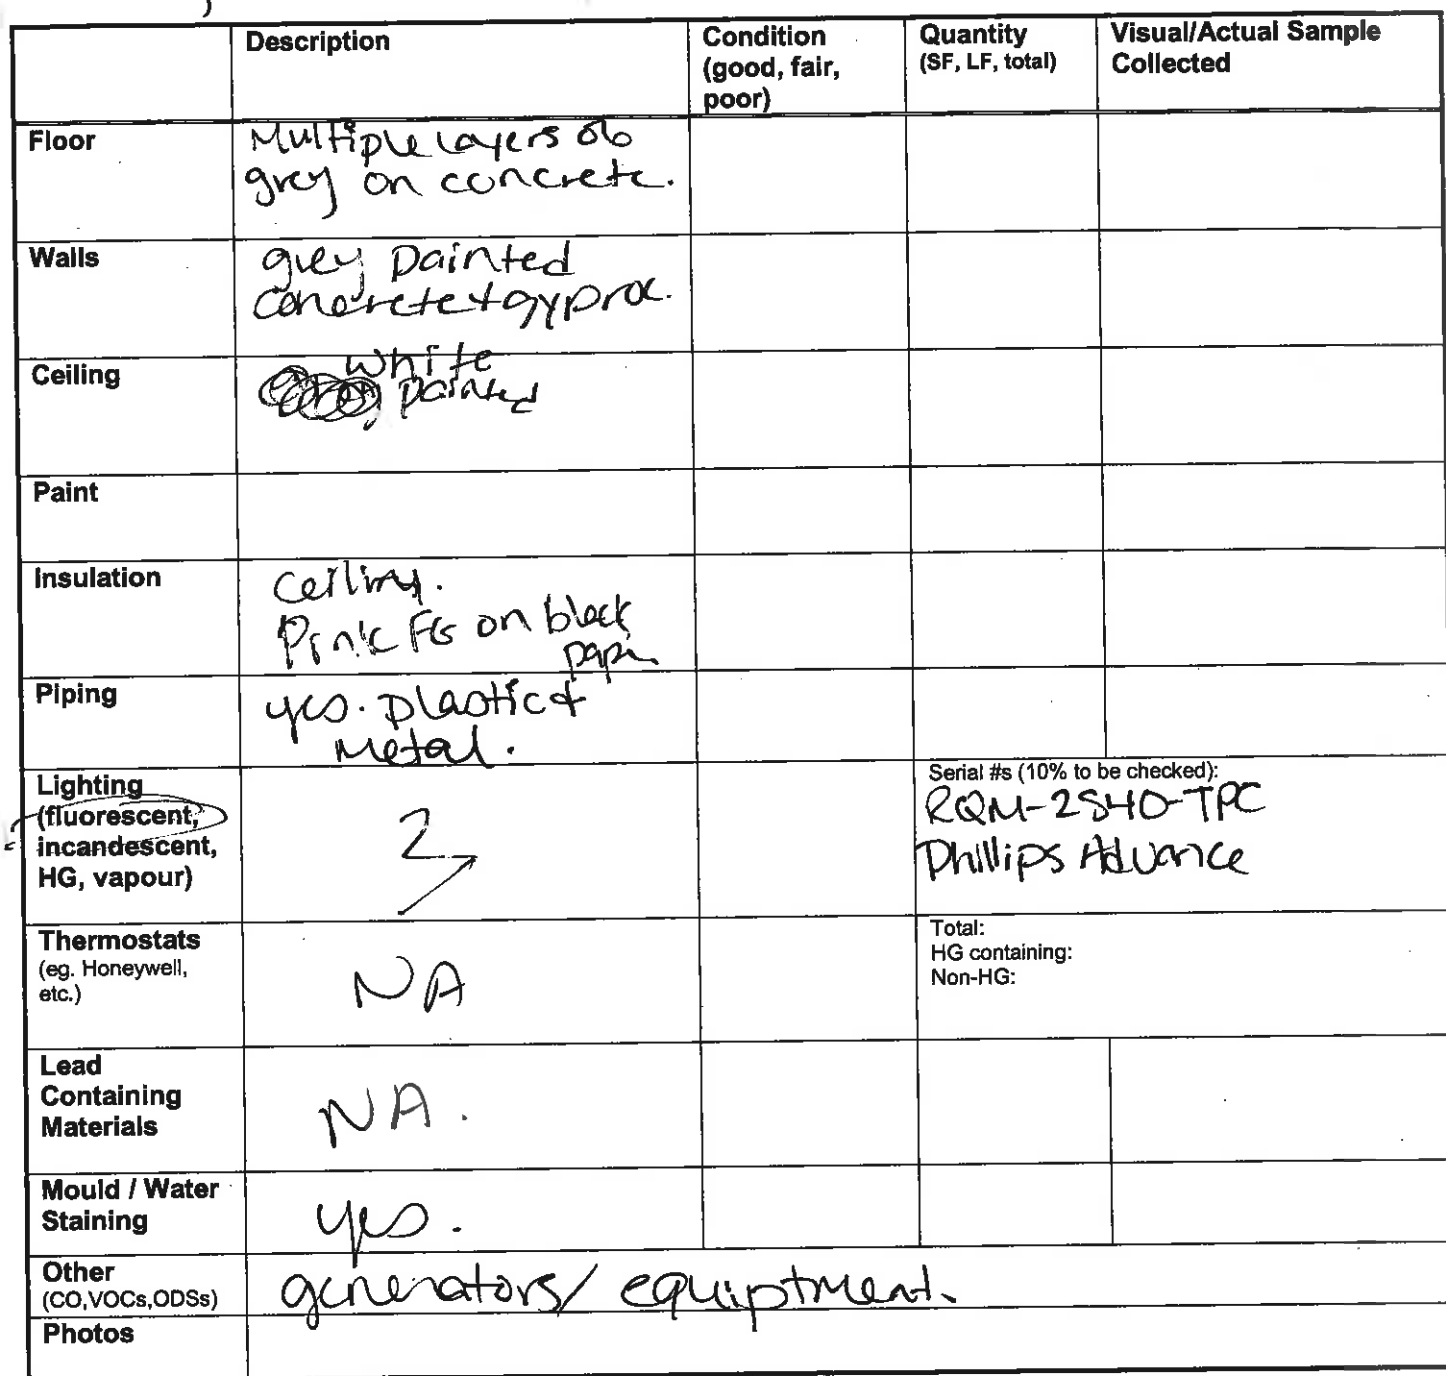 Description
Condition
(good, fair,
poor)
Quantity
(SF, LF, total)
Visual/Actual Sample
Collected
Floor
Multiple layers of
grey on concrete.
Walls
grey painted
concrete + gyproc.
Ceiling
white
painted
Paint
Insulation
Ceiling.
Pink FG on black
paper
Piping
yes. plastic &
metal.
Lighting
(fluorescent,
incandescent,
HG, vapour)
2
Serial #s (10% to be checked):
RQM-2S40-TPC
Phillips Advance
Thermostats
(eg. Honeywell,
etc.)
NA
Total:
HG containing:
Non-HG:
Lead
Containing
Materials
NA.
Mould / Water
Staining
yes.
Other
(CO,VOCs,ODSs)
generators/ equiptment.
Photos